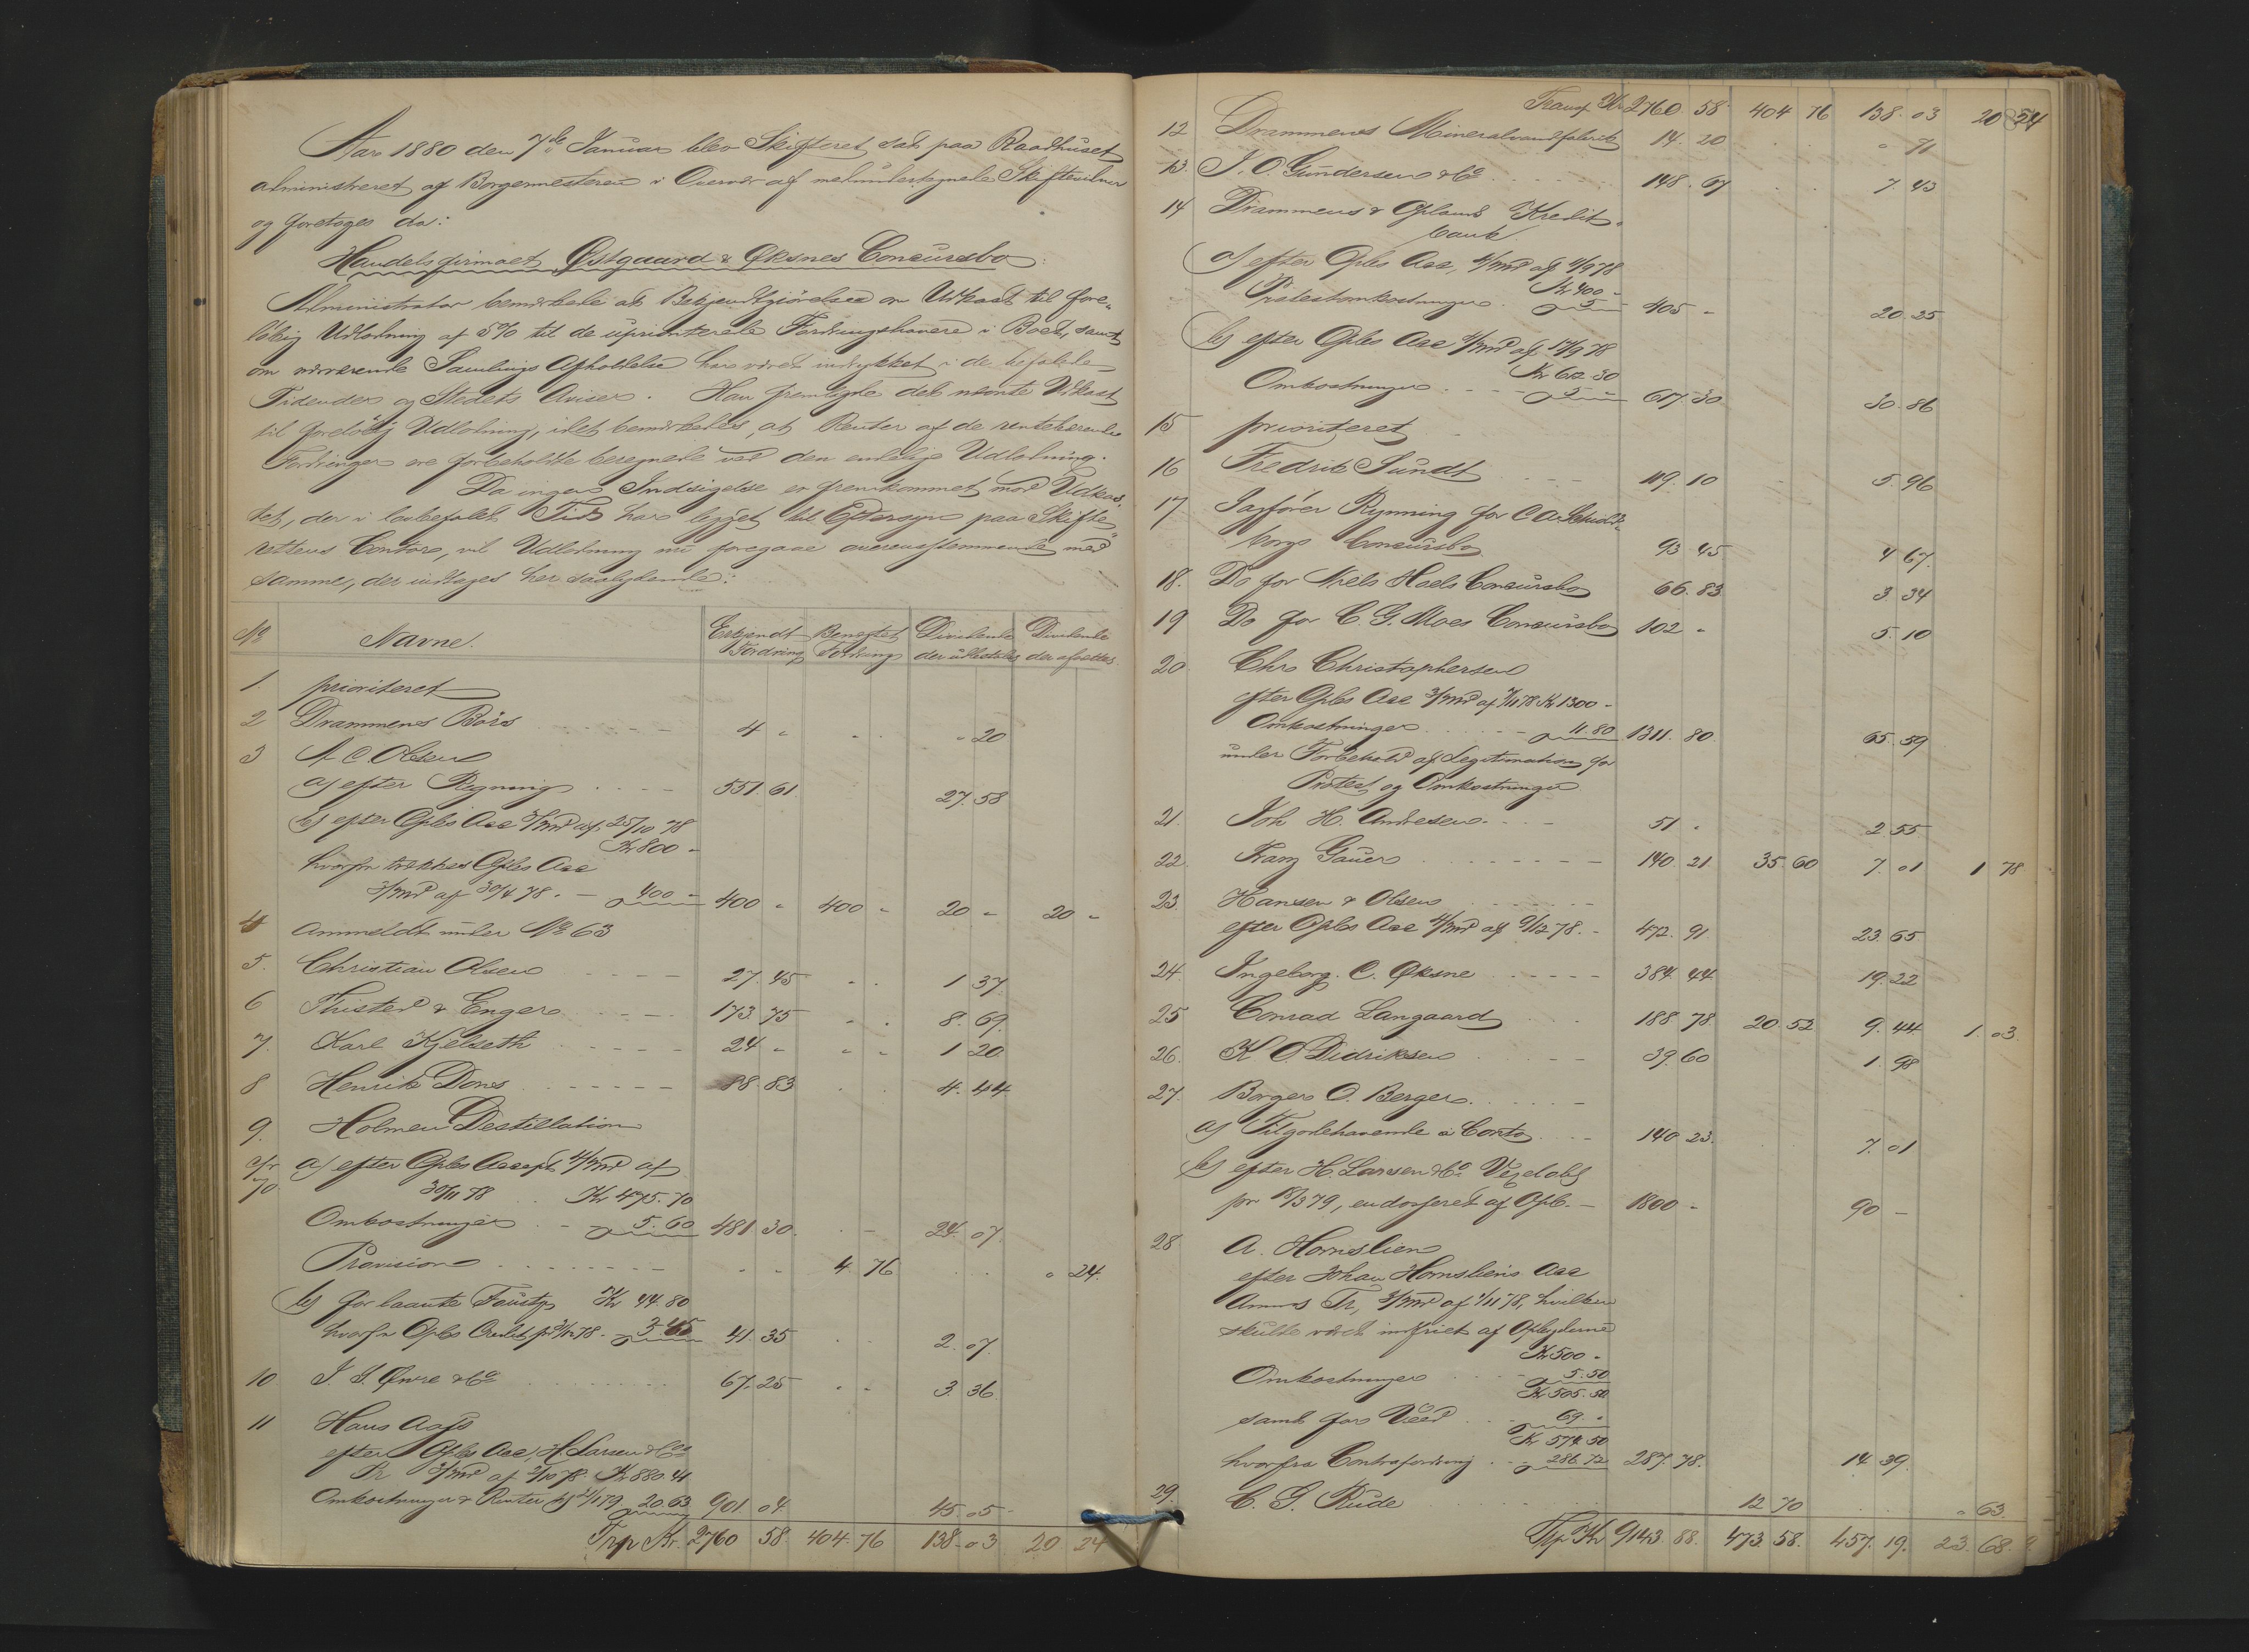 Aar 1880 den 7de Januar blev Skifteret sat paa Raadhuset
administreret af Borgermesteren i Overvær af medundertegnede Skiftevidner
og foretoges da:
Handelsfirmaet Østgaard & Øksnes Concursbo:
Administrator bemærkede at Bekjendtgjørelse om Udkast til fore-
løbig Udlodning af 5% til de uprioriterede Fordringshavere i Boet, samt
om nærværende Samlings Afholdelse har været indrykket i de befalede
Tidender og Stedets Aviser. Han fremlagde det nævnte Udkast
til foreløbig Udlodning, idet bemærkedes, at Renter af de rentebærende
Fordringer ere forbeholdte beregnede ved den endelige Udlodning.
Da ingen Indsigelse er fremkommet mod Udkas-
tet, der i lovbefalet Tid har ligget til Eftersyn paa Skifte-
rettens Contor, vil Udlodning nu foregaae overensstemmende med
samme, der indtages her saalydende:
No Navne. Erkjendt Fordring Benegtet Fordring Dividende der udbetales Dividende der afsættes
1. prioriteret
2 Drammens Börs 4 " " 20
3 A C. Olsen
a) efter Regning 551. 61 27. 58
b) efter Opbs Acc 3/md af 25/10 78
Kr 800 -
hvorfra trækkes Opbs Acc
3/md af 30/4 78. - 400 - 400 " 400 - 20 - 20 -
4 anmeldt under No 63
5. Christian Olsen 27. 45 1 37.
6 Thisted & Enger 173. 75 8. 69.
7. Karl Kjelseth 24 - 1 20
8 Henrik Dons 88. 83 4. 44
9. Holmen Destillation
cfr 70 a) efter Opbs Accept 4/md af
30/11 78 Kr 475. 70
Omkostninger - 5. 60 481 30. 24. 07.
Provision 4. 76 " 24.
b) for laante Fustp Kr 44. 80
hvorfra Opbs Credit pr 31/12 78 - 3.45 41. 35 2. 07.
10 J. J. Øvre & Co 67. 25 3. 36.
11 Hans Aass
efter Opbs Acc, H. Larsen & Co
Tr 3/md af 2/10 78. Kr 880. 41
Omkostninger & Renter 20. 63 901. 04 45. 05 -
Trp Kr. 2760 58. 404. 76 138 - 03 20 24
Transp Kr 2760. 58 404 76 138. 03 20 24
12 Drammens Mineralvandfabrik 14. 20 " 71
13. J. O. Gundersen & Co 148. 67 7. 43
14 Drammens & Oplands Kredit-
bank
a) efter Opbs Acc, 4/md af 4/9 78
Kr 400 -
Protestomkostninger - 5 - 405 - 20. 25
b) efter Opbs Acc 4/md af 17/9 78
Kr 612. 30
Omkostninger - 5 - 617. 30 30. 86
15 prioriteret
16 Fredrik Sundt 119. 10 5. 96
17. Sagfører Rynning for C A. Schiold-
borgs Concursbo 93 45 4 67.
18. Do for Niels Hoels Concursbo 66. 83 3. 34
19 Do for C. G. Moes Concursbo 102 - 5. 10
20. Chr. Christophersen
efter Opbs Acc 3/md af 7/11 78 Kr 1300 -
Omkostninger - 11. 80 1311. 80. 65. 59
under Forbehold af Legitimation for
Protest og Omkostninger
21. Joh H. Andresen 51 . 2. 55
22. Franz Gauer 140. 21. 35. 60 7. 01 1 78
23. Hansen & Olsen
efter Opbs Acc 4/md af 9/12 78. - 472. 91. 23. 65
24. Ingeborg. C. Øksne 384. 44. 19. 22
25 Conrad Langaard 188. 78. 20. 52 9. 44 1. 03.
26. K O Didriksen 39. 60 1. 98
27. Borger O. Berger
a) Tilgodehavende à Conto 140. 23. 7. 01
b) efter H. Larsen & Co Vexelobl
pr 18/3 79, endosseret af Opb. - 1800 - 90 -
28 A. Hornslien
efter Johan Hornsliens Acc
Amunds Tr, 3/md af 1/11 78, hvilken
skulde været indfriet af Opbyderne
Kr 500 -
Omkostninger - 5. 50
Kr 505. 50
samt for Veed - 69. -
Kr 574. 50
hvorfra Contrafordring - 286. 72 287. 78. 14 39.
29. C. G. Rude 12 70 " 63.
Trp Kr 9143. 88. 473. 58. 457. 19. 23. 68.